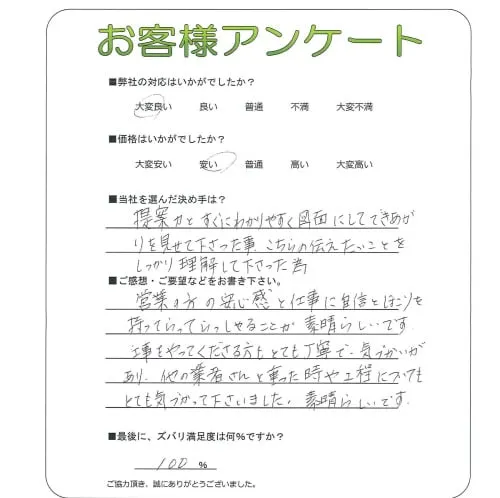 お客様アンケート
■弊社の対応はいかがでしたか？
大変良い 良い 普通 不満 大変不満
■価格はいかがでしたか？
大変安い 安い 普通 高い 大変高い
■当社を選んだ決め手は？
提案力とすぐにわかりやすく図面にしてできあが
りを見せて下さった事、こちらの伝えたいことを
しっかり理解して下さった為
■ご感想・ご要望などをお書き下さい。
営業の方の安心感と仕事に自信とほこりを
持ってらっしゃることが素晴らしいです。
工事をやってくださる方もとても丁寧で、気づかいが
あり、他の業者さんと重った時や工程についても
とても気づかって下さいました。素晴らしいです。
■最後に、ズバリ満足度は何％ですか？
100 ％
ご協力頂き、誠にありがとうございました。